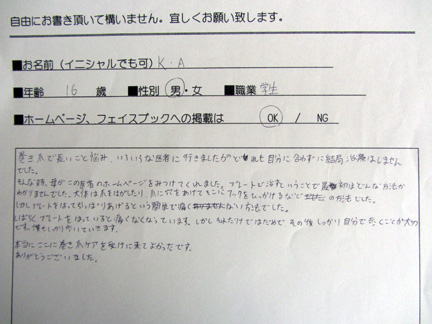 自由にお書き頂いて構いません。宜しくお願い致します。
■お名前(イニシャルでも可) K・A
■年齢 16 歳 ■性別 男・女 ■職業 学生
■ホームページ、フェイスブックへの掲載は OK / NG
巻き爪で長いこと悩み、いろいろな医者に行きましたがどれも自分に合わずに結局治療はしません
でした。
そんな時、母がこの医者のホームページをみつけてくれました。プレートで治すということで最初はどんな方法か
わかりませんでした。大体は爪をはがしたり、爪に穴をあけてそこにフックをひっかけるなど の方法でした。
しかしプレートをはってもちあげるという簡単で痛く ない方法でした。
しばらくプレートをはっていると痛くなくなっています。しかし それだけではだめで その後しっかり自分で くことが大切
です。僕もしっかり いていきます。
本当にここに巻き爪ケアを受けに来てよかったです。
ありがとうございました。